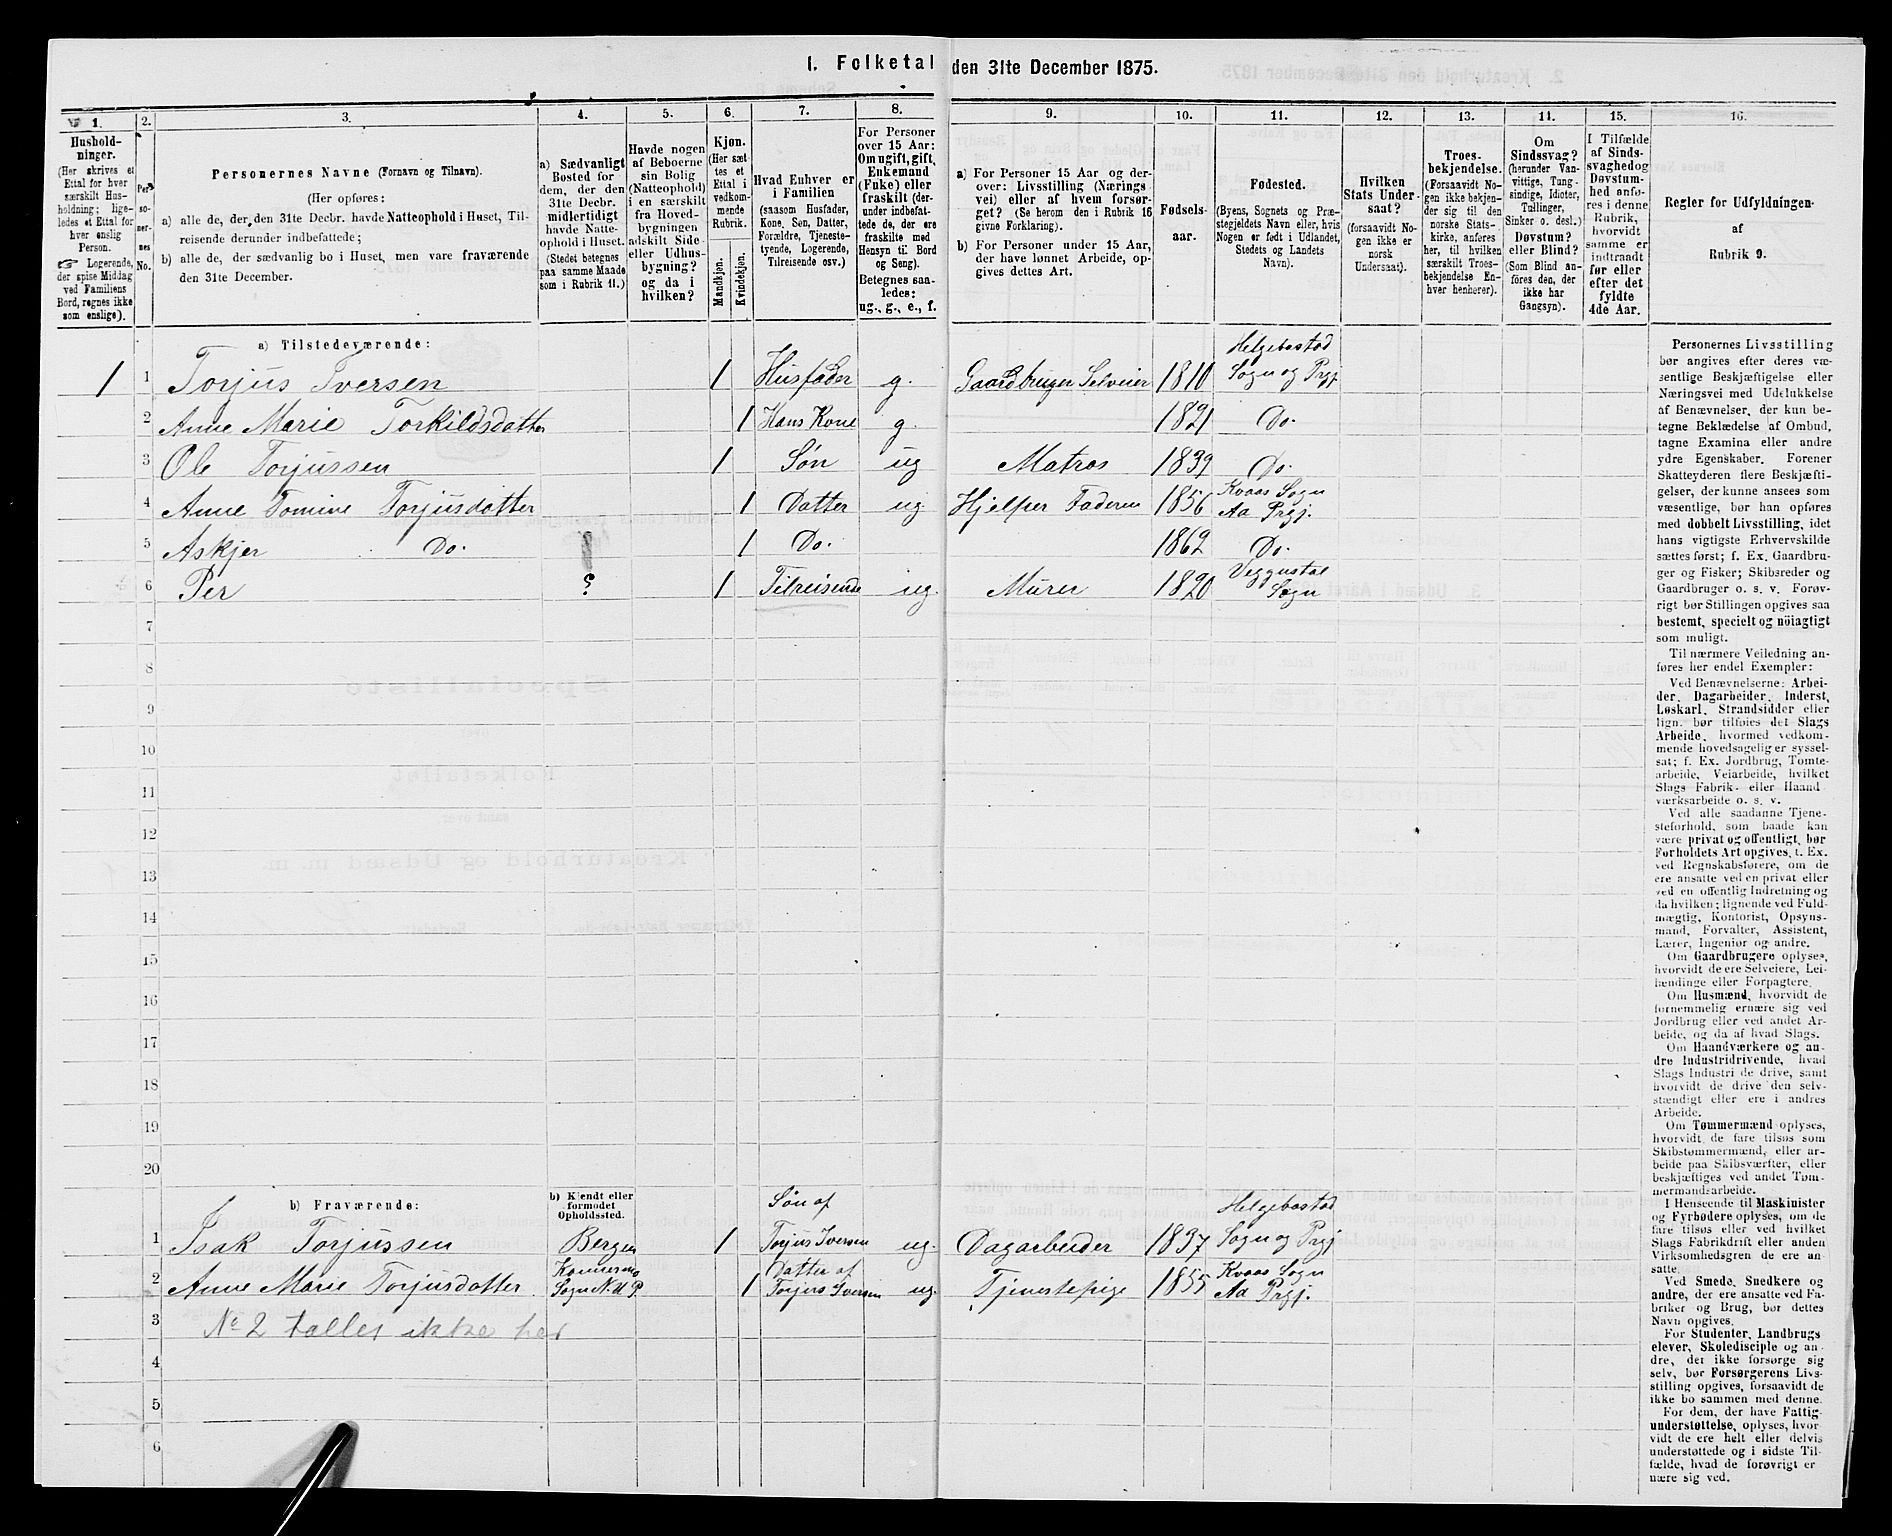 1. Folketal den 31te December 1875.
1. 2. 3. 4. 5. 6. 7. 8. 9. 10. 11. 12. 13. 14. 15. 16.
Hushold-
ninger.
(Her skrives et
Ettal for hver
særskilt Hus-
holdning; lige-
ledes et Ettal for
hver enslig
Person.
☞ Logerende,
der spise Middag
ved Familiens
Bord, regnes ikke
som enslige).
Per-
so-
ner-
nes
No.
Personernes Navne (Fornavn og Tilnavn).
(Her opføres:
a) alle de, der den 31te Decbr. havde Natteophold i Huset, Til-
reisende derunder indbefattede;
b) alle de, der sædvanlig bo i Huset, men vare fraværende
den 31te December.
a) Sædvanligt
Bosted for
dem, der den
31te Decbr.
midlertidigt
havde Natte-
ophold i Huset.
(Stedet betegnes
paa samme Maade
som i Rubrik 11.)
Havde nogen
af Beboerne
sin Bolig
(Natteophold)
i en særskilt
fra Hoved-
bygningen
adskilt Side-
eller Udhus-
bygning?
og da i
hvilken?
Kjøn.
(Her sæt-
tes et
Ettal i
vedkom-
mende
Rubrik.
Mandkjøn.
Kvindekjøn.
Hvad Enhver er
i Familien
(saasom Husfader,
Kone, Søn, Datter,
Forældre, Tjeneste-
tyende, Logerende,
Tilreisende osv.)
For Personer
over 15 Aar:
Om ugift, gift,
Enkemand
(Enke) eller
fraskilt (der-
under indbefat-
tede de, der ere
fraskilte med
Hensyn til Bord
og Seng).
Betegnes saa-
ledes:
ug., g., e., f.
a) For Personer 15 Aar og der-
over: Livsstilling (Nærings-
vei) eller af hvem forsør-
get? (Se herom den i Rubrik 16
givne Forklaring).
b) For Personer under 15 Aar,
der have lønnet Arbeide, op-
gives dettes Art.
Fødsels-
aar.
Fødested.
(Byens, Sognets og Præ-
stegjeldets Navn eller, hvis
Nogen er født i Udlandet,
Stedets og Landets
Navn).
Hvilken
Stats Under-
saat?
(forsaavidt No-
gen ikke er
norsk
Undersaat).
Troes-
bekjendelse.
(Forsaavidt No-
gen ikke bekjen-
der sig til den
norske Stats-
kirke, anføres
her, til hvilken
særskilt Troes-
bekjendelse En-
hver henhører).
Om
Sindssvag?
(herunder Van-
vittige, Tung-
sindige, Idioter,
Tullinger,
Sinker o. desl.)
Døvstum?
eller Blind?
(Som Blind an-
føres den, der
ikke har
Gangsyn).
I Tilfælde
af Sinds-
svaghed og
Døvstum-
hed anfø-
res i denne
Rubrik,
hvorvidt
samme er
indtraadt
før eller
efter det
fyldte
4de Aar.
Regler for Udfyldningen
af
Rubrik 9.
a) Tilstedeværende:
Helgebostad
1 1 Torjus Iversen 1 Husfader g. Gaardbruger Selveier 1810 Sogn og Prgj
2 Anne Marie Torkildsdatter 1 Hans Kone g. 1821 Do.
3 Ole Torjussen 1 Søn ug Matros 1839 Do.
4 Anne Tomine Torjusdatter 1 Datter ug. Hjelper Faderen 1856 Kvaas Sogn
Aa Prgj.
5 Askjer Do. 1 Do. 1862 Do.
6 Per ? 1 Tilreisende ug. Murer 1820 Veggustal
Sogn
7
8
9
10
11
12
13
14
15
16
17
18
19
20
b) Fraværende:
b) Kjendt eller
formodet
Opholdssted.
Søn af
Helgebostad
1 Isak Torjussen Bergen 1 Torjus Iversen ug. Dagarbeider 1837 Sogn og Prgj
2 Anne Marie Torjusdatter Sogn N. U P. 1 Datter af
Torjus Iversen ug. Tjenestepige 1855 Kvaas Sogn
Aa Prgj.
3 No 2 talles ikke her
4
5
6
Personernes Livsstilling
bør angives efter deres væ-
sentlige Beskjæftigelse eller
Næringsvei med Udelukkelse
af Benævnelser, der kun be-
tegne Beklædelse af Ombud,
tagne Examina eller andre
ydre Egenskaber. Forener
Skatteyderen flere Beskjæfti-
gelser, der kunne ansees som
væsentlige, bør han opføres
med dobbelt Livsstilling, idet
hans vigtigste Erhvervskilde
sættes først; f. Ex. Gaardbru-
ger og Fisker; Skibsreder og
Gaardbruger o. s. v. Forøv-
rigt bør Stillingen opgives saa
bestemt, specielt og nøiagtigt
som muligt.
Til nærmere Veiledning an-
føres her endel Exempler:
Ved Benævnelserne: Arbei-
der, Dagarbeider, Inderst,
Løskarl, Strandsidder eller
lign. bør tilføies det Slags
Arbeide, hvormed vedkom-
mende hovedsagelig er syssel-
sat; f. Ex. Jordbrug, Tomte-
arbeide, Veiarbeide, hvilket
Slags Fabrik- eller Haand-
værksarbeide o. s. v.
Ved alle saadanne Tjene-
steforhold, som baade kan
være privat og offentligt, bør
Forholdets Art opgives, t. Ex.
ved Regnskabsførere, om de
ere ansatte ved en privat eller
ved en offentlig Indretning og
da hvilken; lignende ved Fuld-
mægtig, Kontorist, Opsyns-
mand, Forvalter, Assistent,
Lærer, Ingeniør og andre.
Om Gaardbrugere oplyses,
hvorvidt de ere Selveiere, Lei-
lændinge eller Forpagtere.
Om Husmænd, hvorvidt de
fornemmelig ernære sig ved
Jordbrug eller ved andet Ar-
beide, og da af hvad Slags.
Om Haandværkere og an-
dre Industridrivende, hvad
Slags Industri de drive, samt
hvorvidt de drive den selv-
stændigt eller ere i andres
Arbeide.
Om Tømmermænd oplyses,
hvorvidt de fare tilsøs som
Skibstømmermænd, eller ar-
beide paa Skibsværfter, eller
beskjæftiges ved andet Tøm-
mermandsarbeide.
I Henseende til Maskinister
og Fyrbødere oplyses, om de
fare tilsøs eller ved hvilket
Slags Fabrikdrift eller anden
Virksomhedsgren de ere an-
satte.
Ved Smede, Snedkere og
andre, der ere ansatte ved Fa-
briker og Brug, bør dettes
Navn opgives.
For Studenter, Landbrugs-
elever, Skoledisciple og an-
dre, der ikke forsørge sig
selv, bør Forsørgerens Livs-
stilling opgives, forsaavidt de
ikke bo sammen med denne.
For dem, der have Fattig-
understøttelse, oplyses, hvor-
vidt de ere helt eller delvis
understøttede og i sidste Til-
fælde, hvad de forøvrigt er-
nære sig ved.